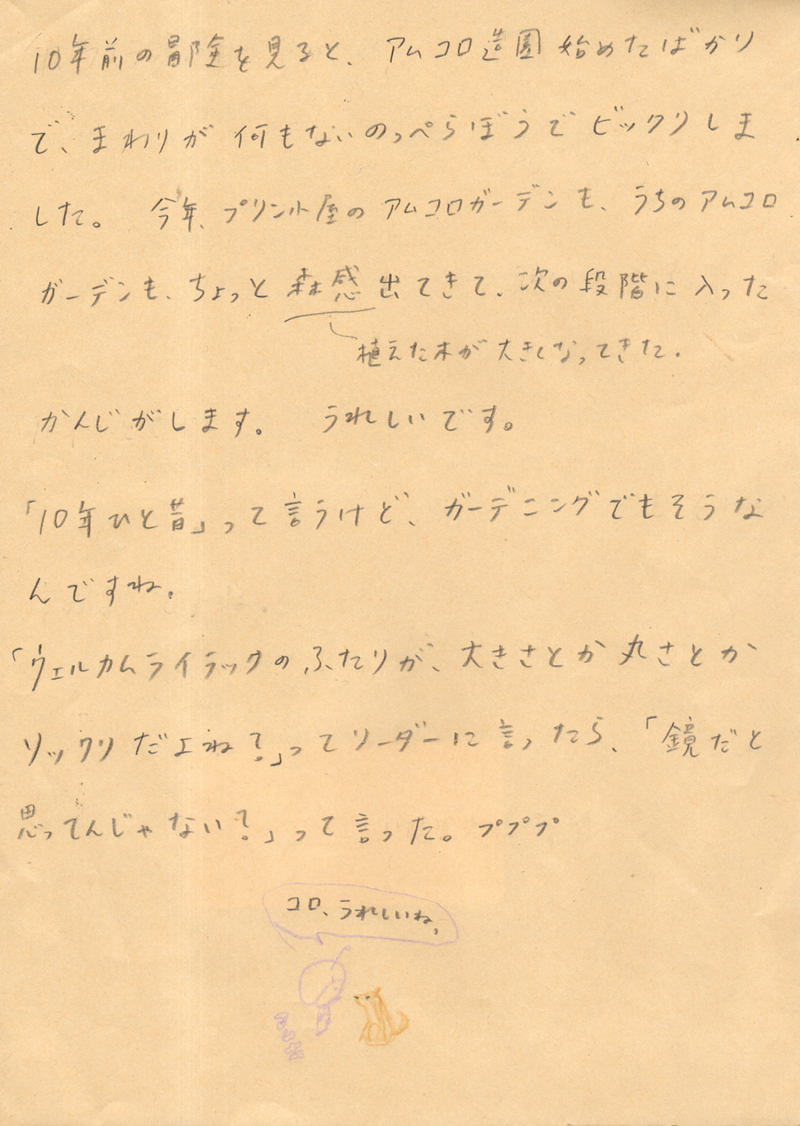 10年前の冒険を見ると、アムコロ造園始めたばかり
で、まわりが何もないのっぺらぼうでビックリしま
した。 今年、プリン小屋のアムコロガーデンも、うちのアムコロ
ガーデンも、ちょっと森感出てきて、次の段階に入った
植えた木が大きくなってきた。
かんじがします。 うれしいです。
「10年ひと昔」って言うけど、ガーデニングでもそうな
んですね。
「ウェルカムライラックのふたりが、大きさとか丸さとか
ソックリだよね?」ってリーダーに言ったら、「鏡だと
思ってんじゃない?」って言った。ププププ
コロ、うれしいね。